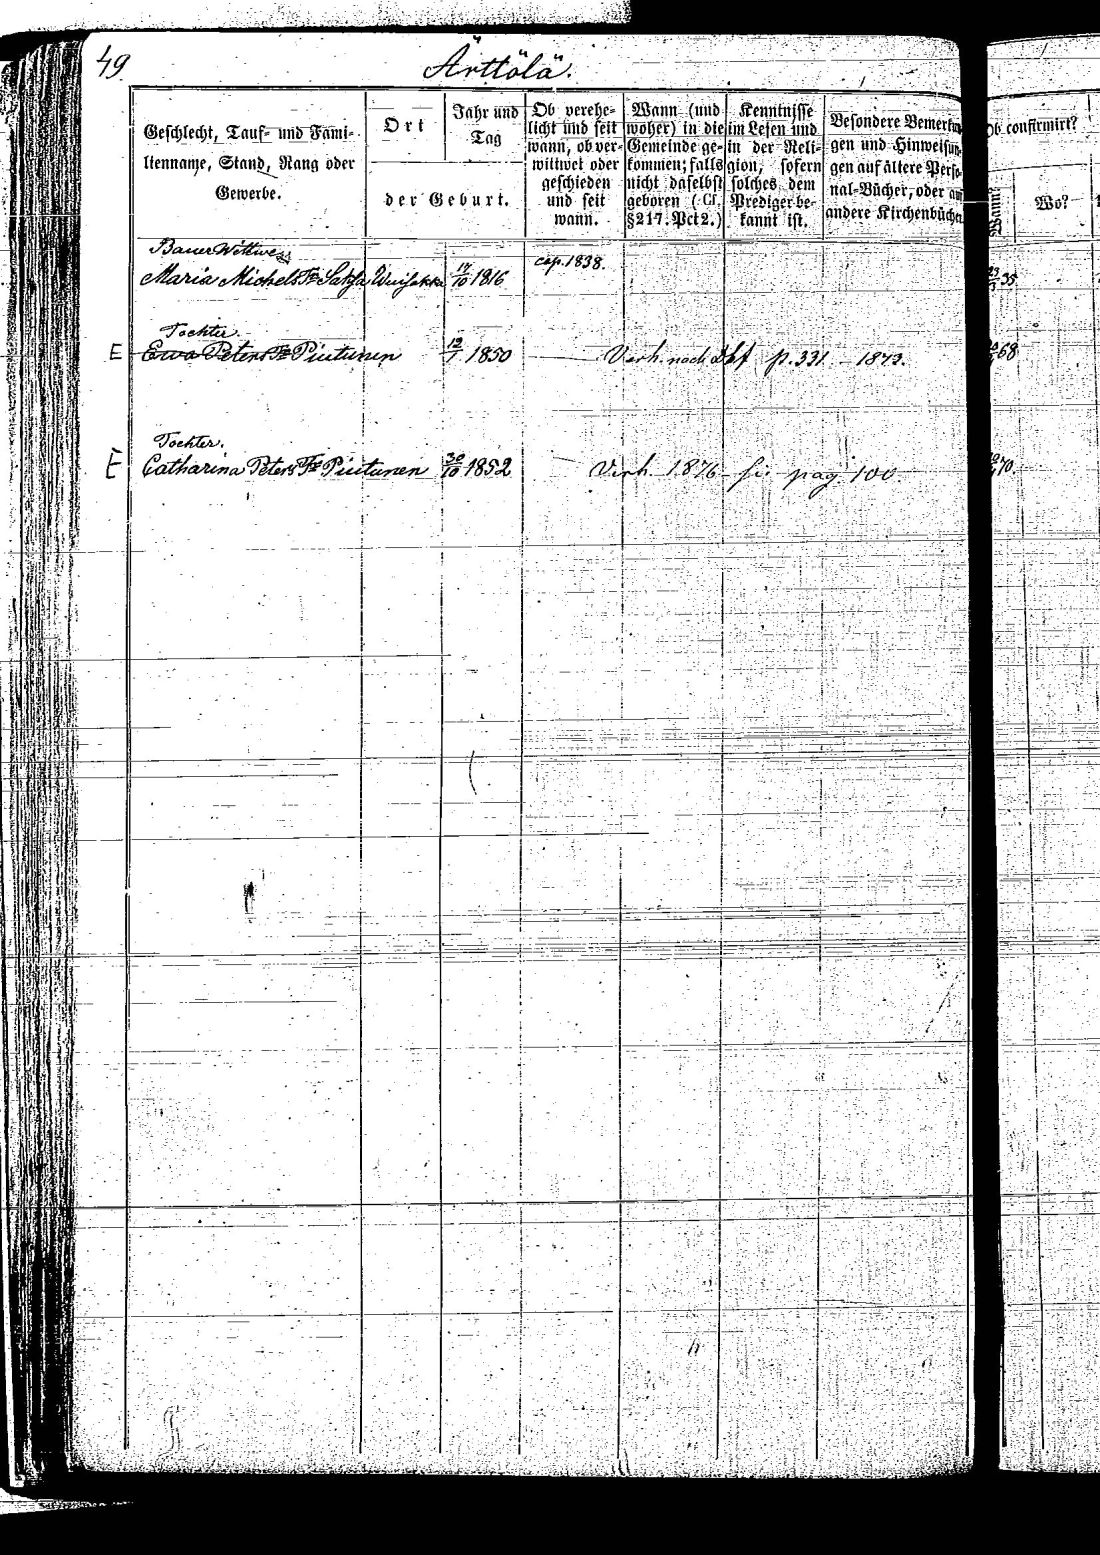 49
Ärttölä.
Geschlecht, Tauf- und Fami-
lienname, Stand, Rang oder
Gewerbe.
Ort
Jahr und
Tag
der Geburt.
Ob verehe-
licht und seit
wann, ob ver-
wittwet oder
geschieden
und seit
wann.
Wann (und
woher) in die
Gemeinde ge-
kommen; falls
nicht daselbst
geboren (Cf.
§217. Pct 2.)
Kenntnisse
im Lesen und
in der Reli-
gion, sofern
solches dem
Prediger be-
kannt ist.
Besondere Bemerkun
gen und Hinweisun
gen auf ältere Perso
nal-Bücher, oder an
andere Kirchenbücher
Ob confirmirt?
Wann?
Wo?
Bauer Wittwe
Maria Michels Tr 17/10 1816 cop. 1838. 35
Tochter
E Ewa Peters Tr Piutunen 12/1 1850 Verh. nach p. 331. 1873. 68
Tochter.
E Catharina Peters Tr Piutunen 30/10 1852 Verh. 1876 pag. 100. 70.